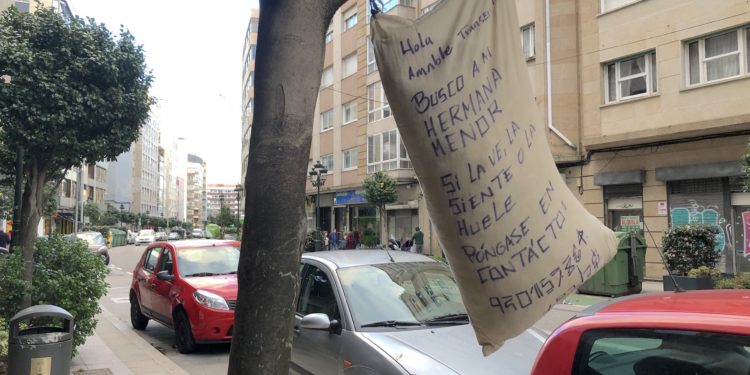 Hola
Amable
BUSCO A MI
HERMANA
MENOR
SI LA VE, LA
SIENTE O LA
HUELE
PÓNGASE EN
CONTÁCTO!